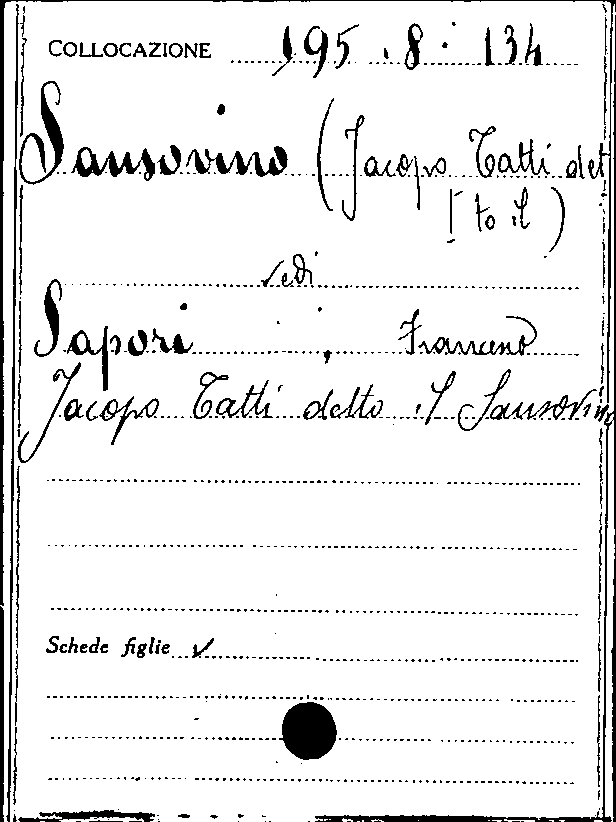 COLLOCAZIONE 195 . 8 . 134
Sansovino (Jacopo Tatti det
to il)
vedi
Sapori , Francesco
Jacopo Tatti detto il Sansovino
Schede figlie ✓